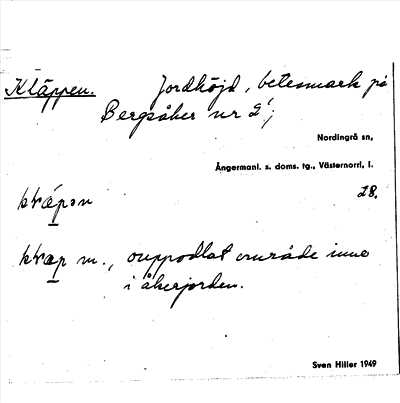 Kläppen. Jordhöjd, betesmark på
Bergsåker nr 2;
Nordingrå sn,
Ångermanl. s. doms. tg., Västernorrl. l.
28.
m., ouppodlat område inne
i åkerjorden.
Sven Hiller 1949